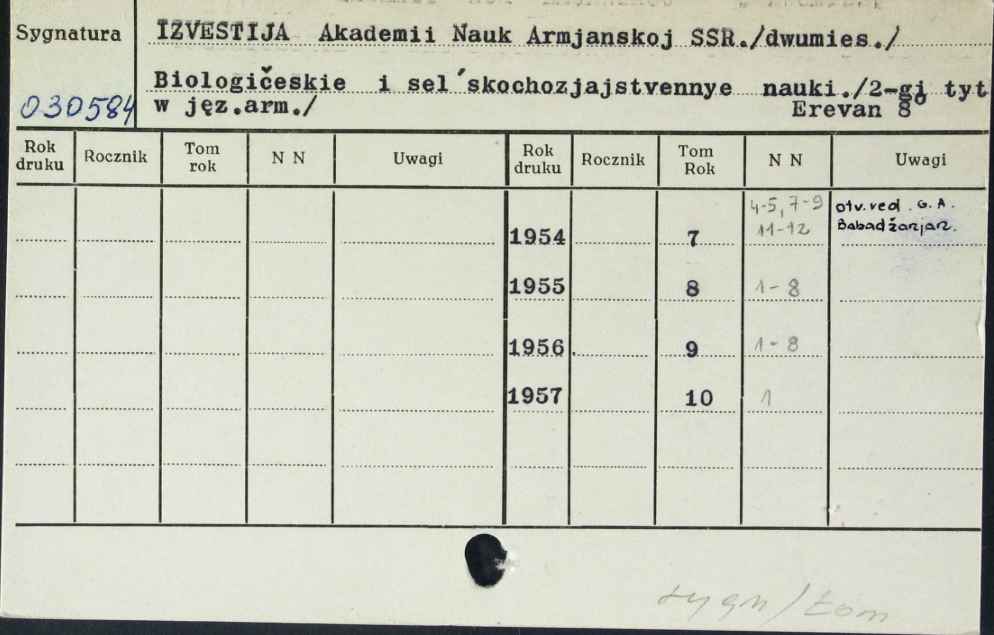 Sygnatura
IZVESTIJA Akademii Nauk Armjanskoj SSR./dwumies./
Biologičeskie i sel´skochozjajstvennye nauki./2-gi tyt
030584
w jęz.arm./ Erevan 8°
Rok druku Rocznik Tom rok N N Uwagi Rok druku Rocznik Tom Rok N N Uwagi
1954 7 4-5, 7-9 11-12 otv. red. G. A. Babadžanjan.
1955 8 1-8
1956. 9 1-8
1957 10 1